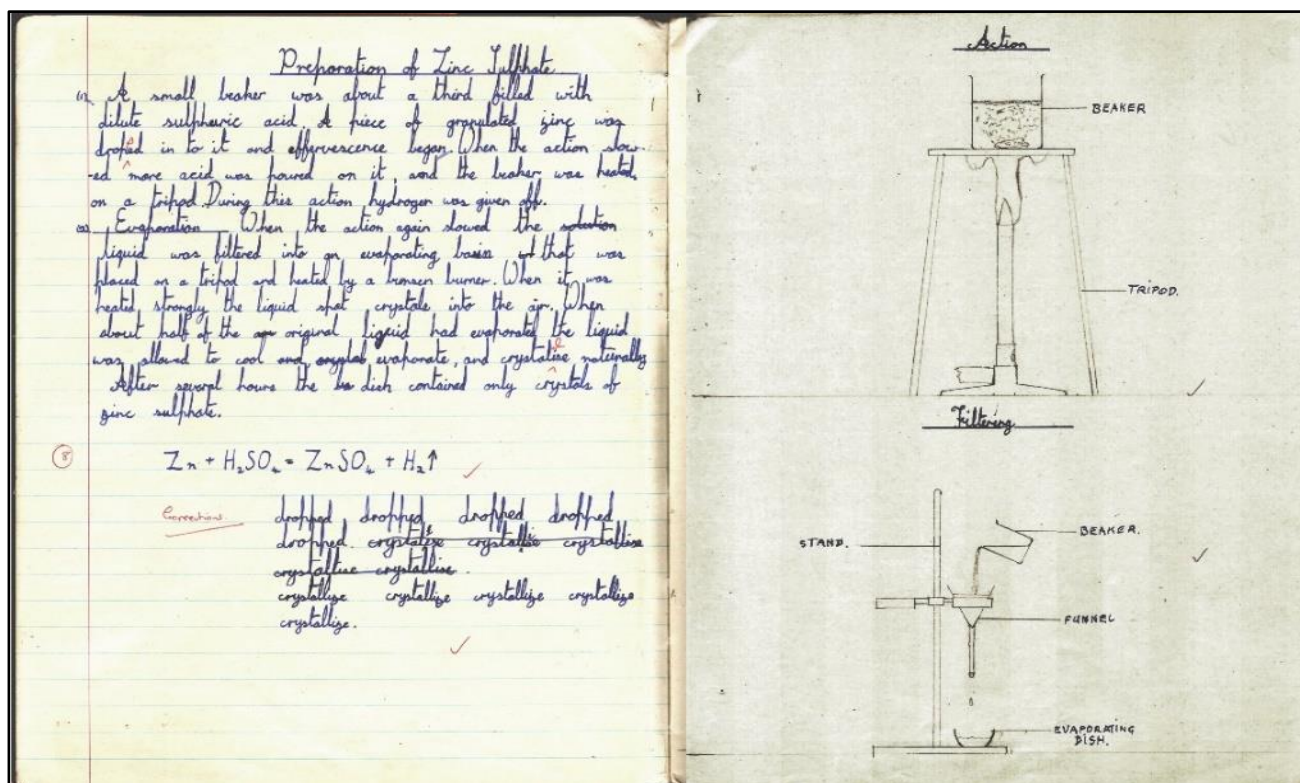 Preparation of Zinc Sulphate
(1). A small beaker was about a third filled with
dilute sulphuric acid. A piece of granulated zinc was
droped in to it and effervescence began. When the action slow-
-ed more acid was poured on it, and the beaker was heated,
on a tripod. During this action hydrogen was given off.
(2). Evaporation When the action again slowed the solution
liquid was filtered into an evaporating basin that was
placed on a tripod and heated by a bunsen burner. When it was
heated strongly the liquid spat crystals into the air. When
about half of the original liquid had evaporated the liquid
was allowed to cool and evaporate, and crystalise naturally
After several hours the dish contained only crystals of
zinc sulphate.
8
Zn + H₂SO₄ = ZnSO₄ + H₂↑
Corrections.
dropped dropped dropped dropped
dropped. crystallise crystallise crystallise
crystallise crystallise.
crystallize crystallize crystallize crystallize
crystallize.
Action
BEAKER
TRIPOD.
Filtering
STAND.
BEAKER.
FUNNEL
EVAPORATING
DISH.